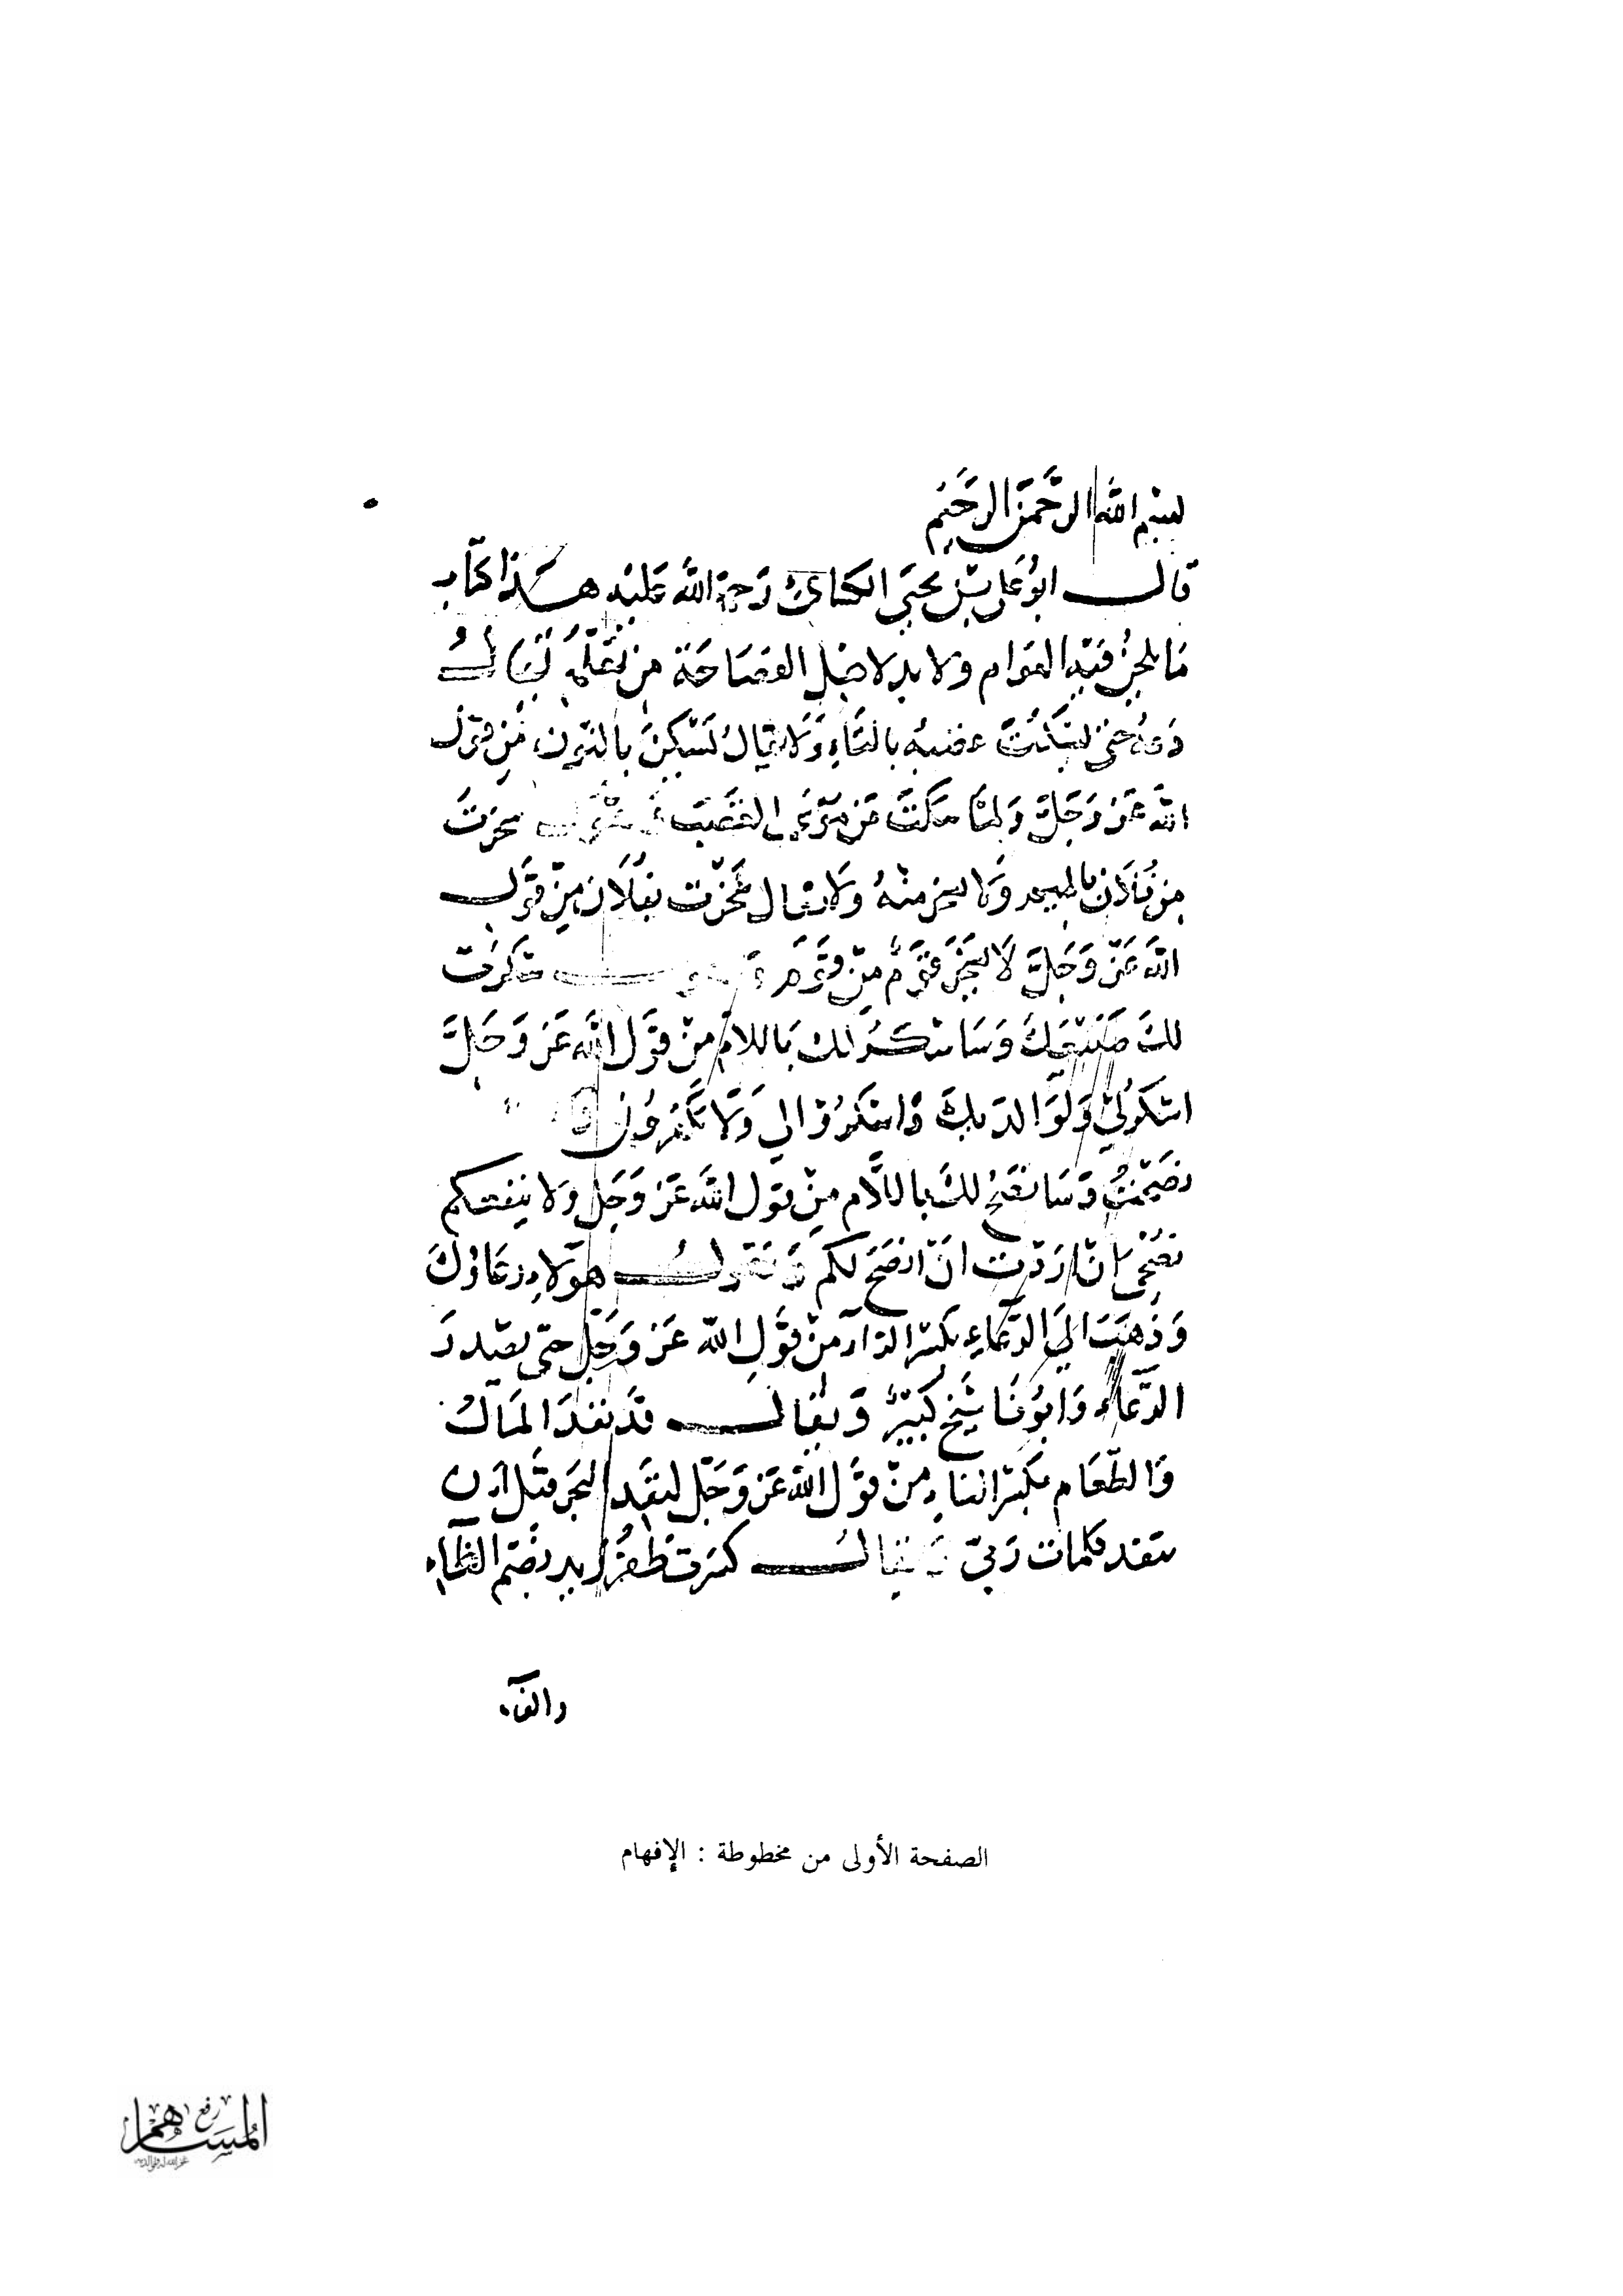 بسم الله الرحمن الرحيم
قال ابو عايش يحيى الكسائى رحمة الله عليه هذا كتاب
ما يلحن فيه العوام ولا بد لاهل الفصاحة من تعلمه يقال
دعه حتى يسكت غضبه بالتاء ولا يقال يسكن بالنون من قول
الله عز وجل ولما سكت عن موسى الغضب سخرت
من فلان بالميم ولا منه ولا يقال سخرت بفلان من قول
الله عز وجل لا يسخر قوم من قوم شكرت
لك صنيعك وسا شكر لك باللام من قول الله عز وجل
اشكر لي ولوالديك واشكروا لي ولا تكفرون
نصحت وسا نصح لك باللام من قول الله عز وجل ولا ينفعكم
نصحي ان اردت ان انصح لكم وتقول هولاء رعاوك
وذهبت الى الرعاء بكسر الرآ من قول الله عز وجل حتى يصدر
الرعاء وابونا شيخ كبير ويقال قد نفد المال
والطعام بكسر الفاء من قول الله عز وجل لنفد البحر قبل ان
تنفد كلمات ربي ويقال كسرت ظفر يد بضم الظاء
والفآء
الصفحة الأولى من مخطوطة : الإفهام
رفع
المساهم
غفر الله له ولوالديه